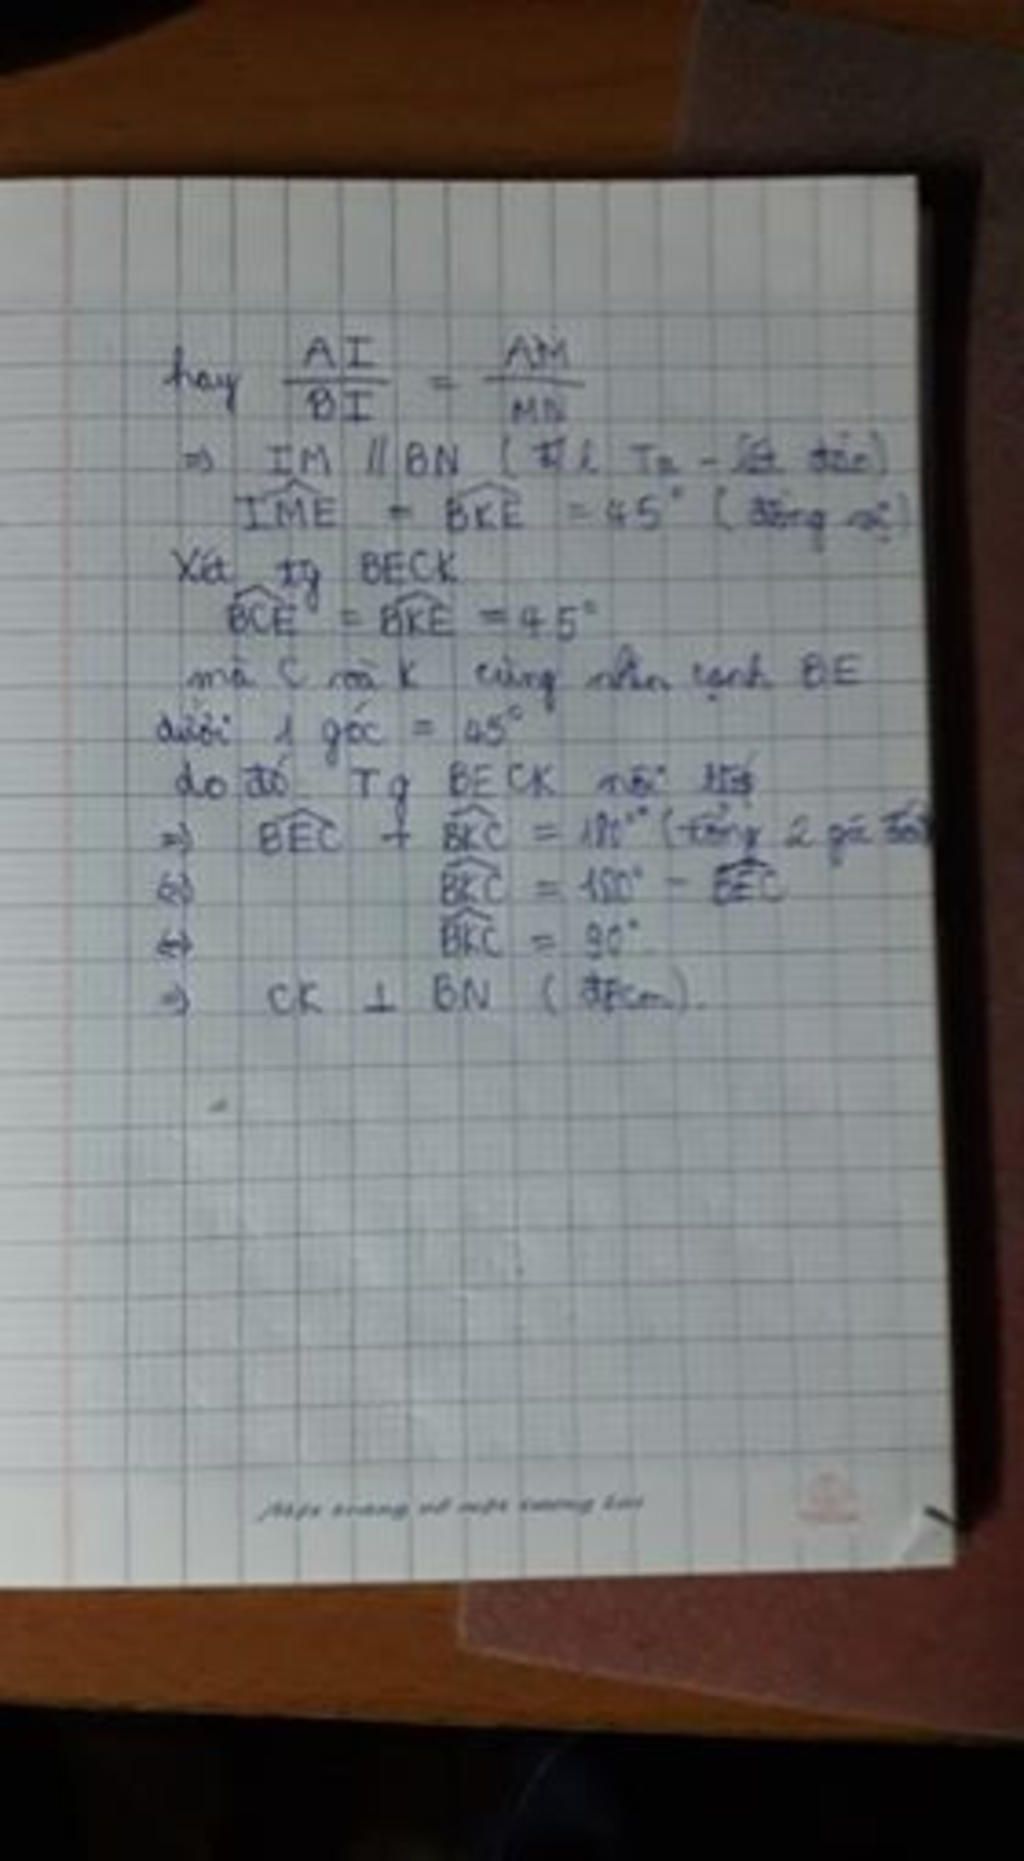 hay AI/BI = AM/MN
=> IM // BN (đ/l Ta-lét đảo)
IME = BKE = 45° (đồng vị)
Xét tg BECK
BCE = BKE = 45°
mà C và K cùng nhìn cạnh BE
dưới 1 góc = 45°
do đó Tg BECK nội tiếp
=> BEC + BKC = 180° (tổng 2 góc đối
<=> BKC = 180° - BEC
<=> BKC = 90°
=> CK ⊥ BN (đpcm).
Một trang vở một tương lai